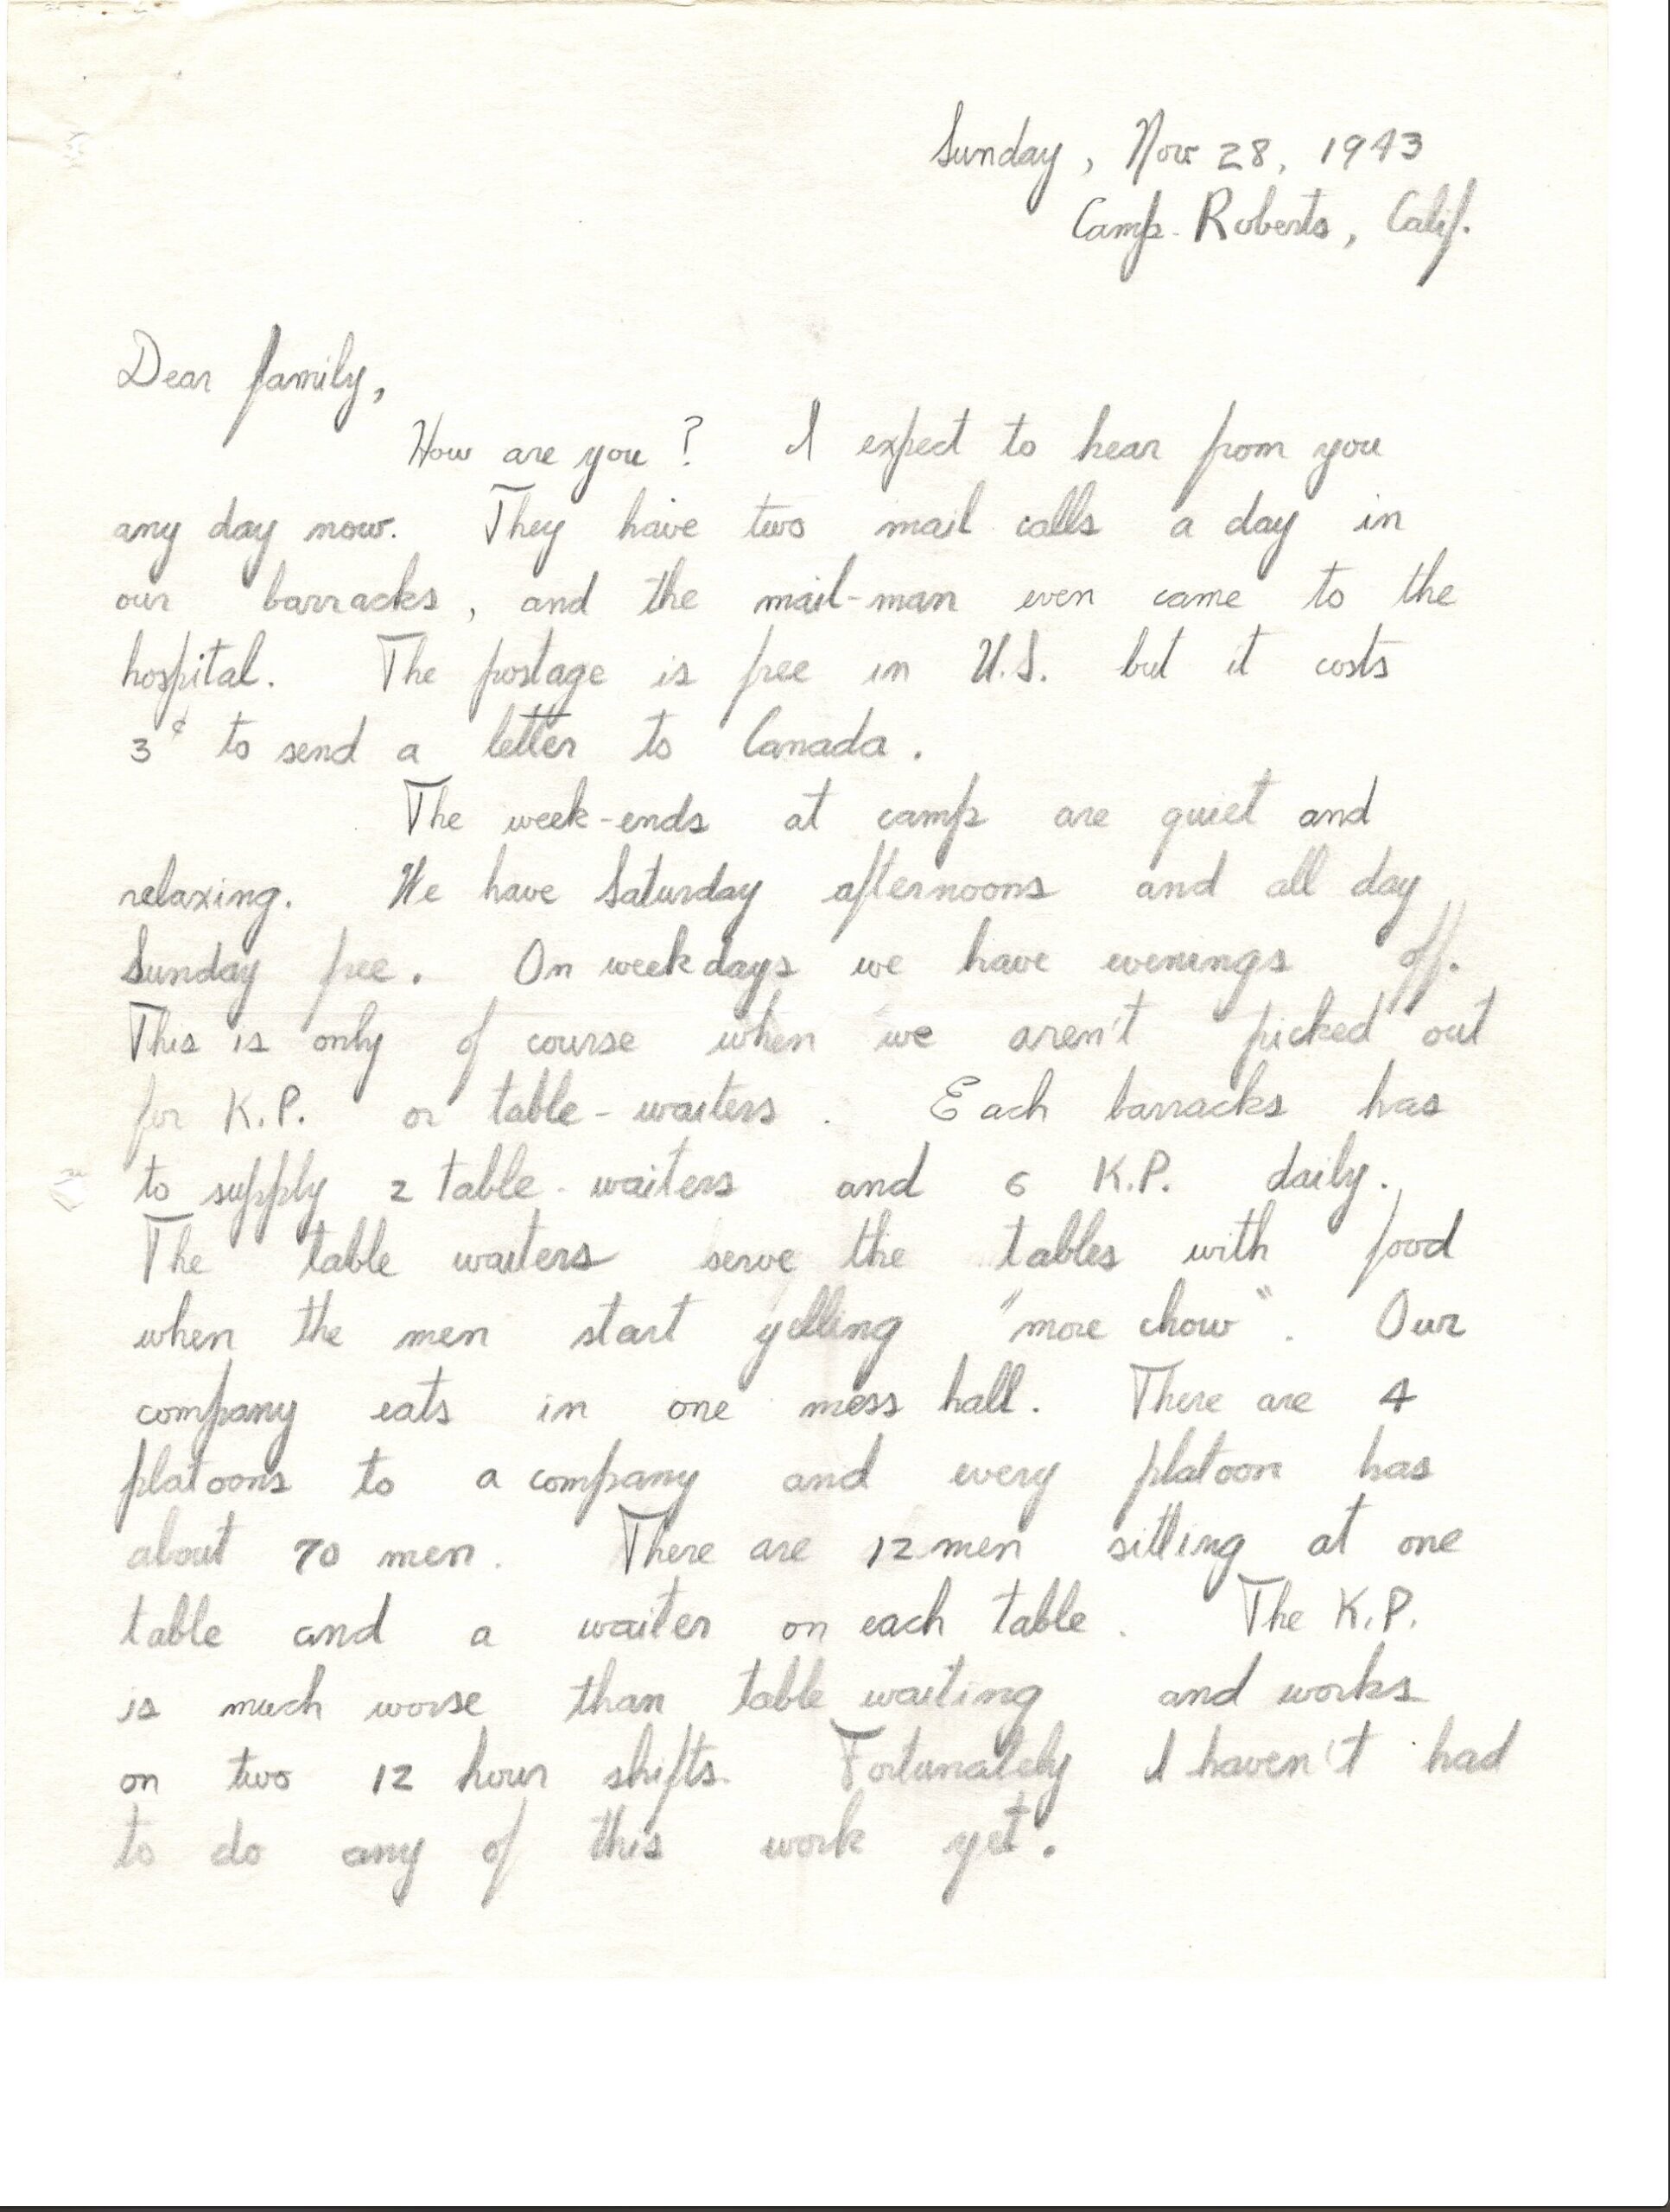 Sunday, Nov 28, 1943
Camp Roberts, Calif.
Dear family,
How are you? I expect to hear from you
any day now. They have two mail calls a day in
our barracks, and the mail-man even came to the
hospital. The postage is free in U.S. but it costs
3¢ to send a letter to Canada.
The week-ends at camp are quiet and
relaxing. We have Saturday afternoons and all day
Sunday free. On weekdays we have evenings off.
This is only of course when we aren't picked out
for K.P. or table-waiters. Each barracks has
to supply 2 table-waiters and 6 K.P. daily.
The table waiters serve the tables with food
when the men start yelling "more chow". Our
company eats in one mess hall. There are 4
platoons to a company and every platoon has
about 70 men. There are 12 men sitting at one
table and a waiter on each table. The K.P.
is much worse than table waiting and works
on two 12 hour shifts. Fortunately I haven't had
to do any of this work yet.